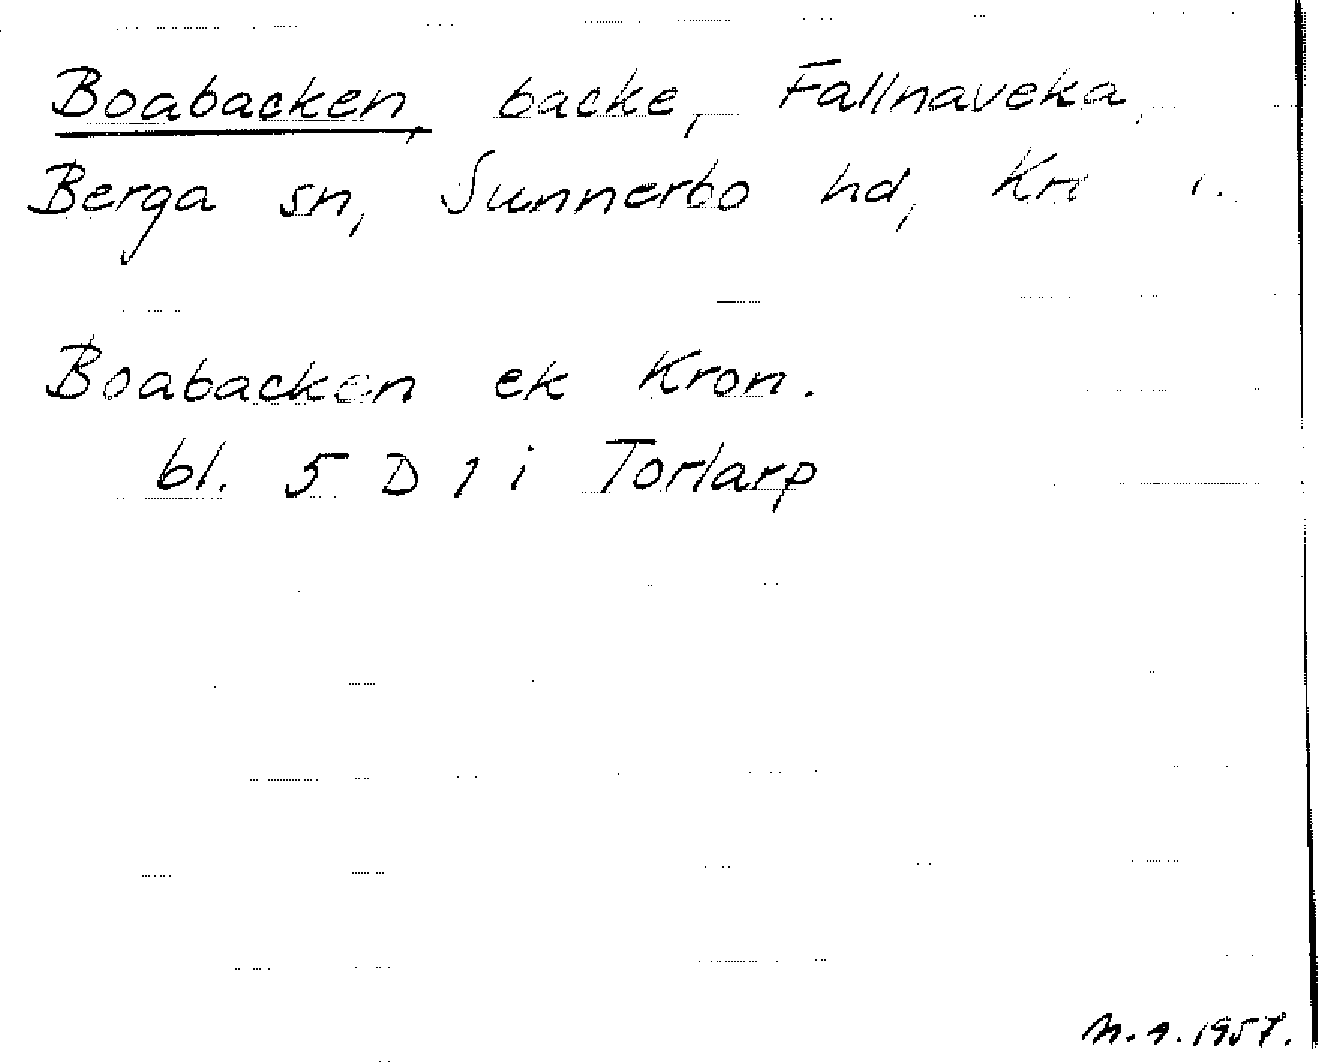 Boabacken, backe, Fallnaveka,
Berga sn, Sunnerbo hd,
Boabacken ek Kron.
bl. 5 D 1 i Torlarp
1957.